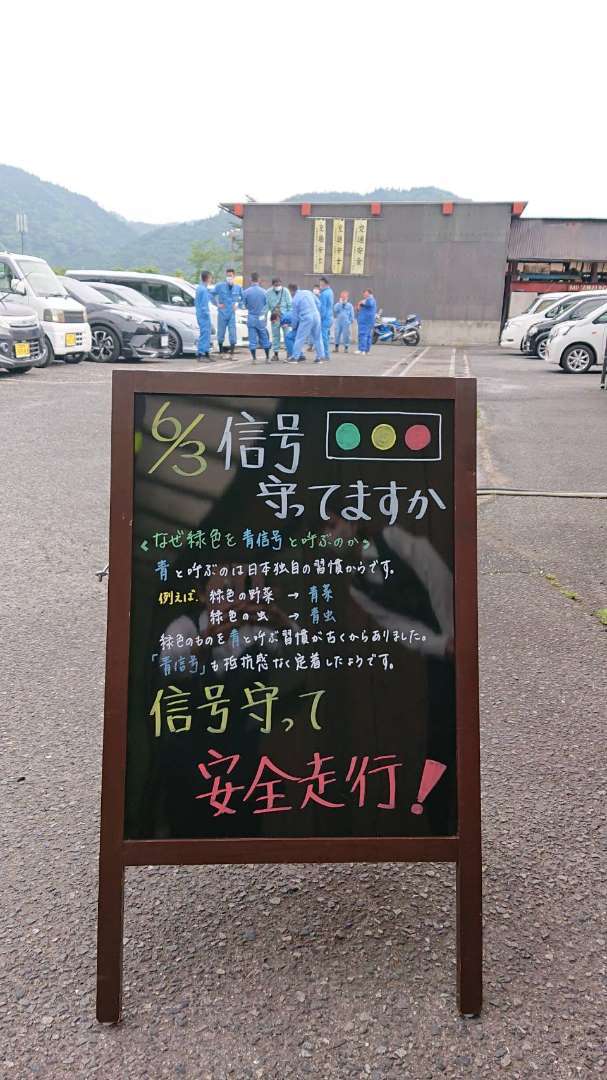 6/3 信号
守ってますか
<なぜ緑色を青信号と呼ぶのか>
青と呼ぶのは日本独自の習慣からです。
例えば、緑色の野菜 → 青菜
緑色の虫 → 青虫
緑色のものを青と呼ぶ習慣が古くからありました。
「青信号」も抵抗感なく定着したようです。
信号守って
安全走行!
交通安全